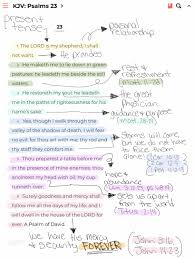 KJV: Psalms 23
present
tense
23
personal
relationship
The LORD is my shepherd; I shall
not want.
He provides
He maketh me to lie down in green
pastures: he leadeth me beside the still
waters.
rest &
refreshment
(matt. 11:28)
He restoreth my soul: he leadeth
me in the paths of righteousness for his
name's sake.
the great
Physician
guidance & purpose
Yea, though I walk through the
valley of the shadow of death, I will fear
no evil: for thou art with me; thy rod and
thy staff they comfort me.
storms will come
but we do not
have to be afraid
Thou preparest a table before me
in the presence of mine enemies: thou
anointest my head with oil; my cup
runneth over.
hope &
abundance
Surely goodness and mercy shall
follow me all the days of my life: and I
will dwell in the house of the LORD for
ever. A Psalm of David.
sets us apart
from the world
Titus 2:14
we have His mercy
& security FOREVER
John 3:16
John 14:23